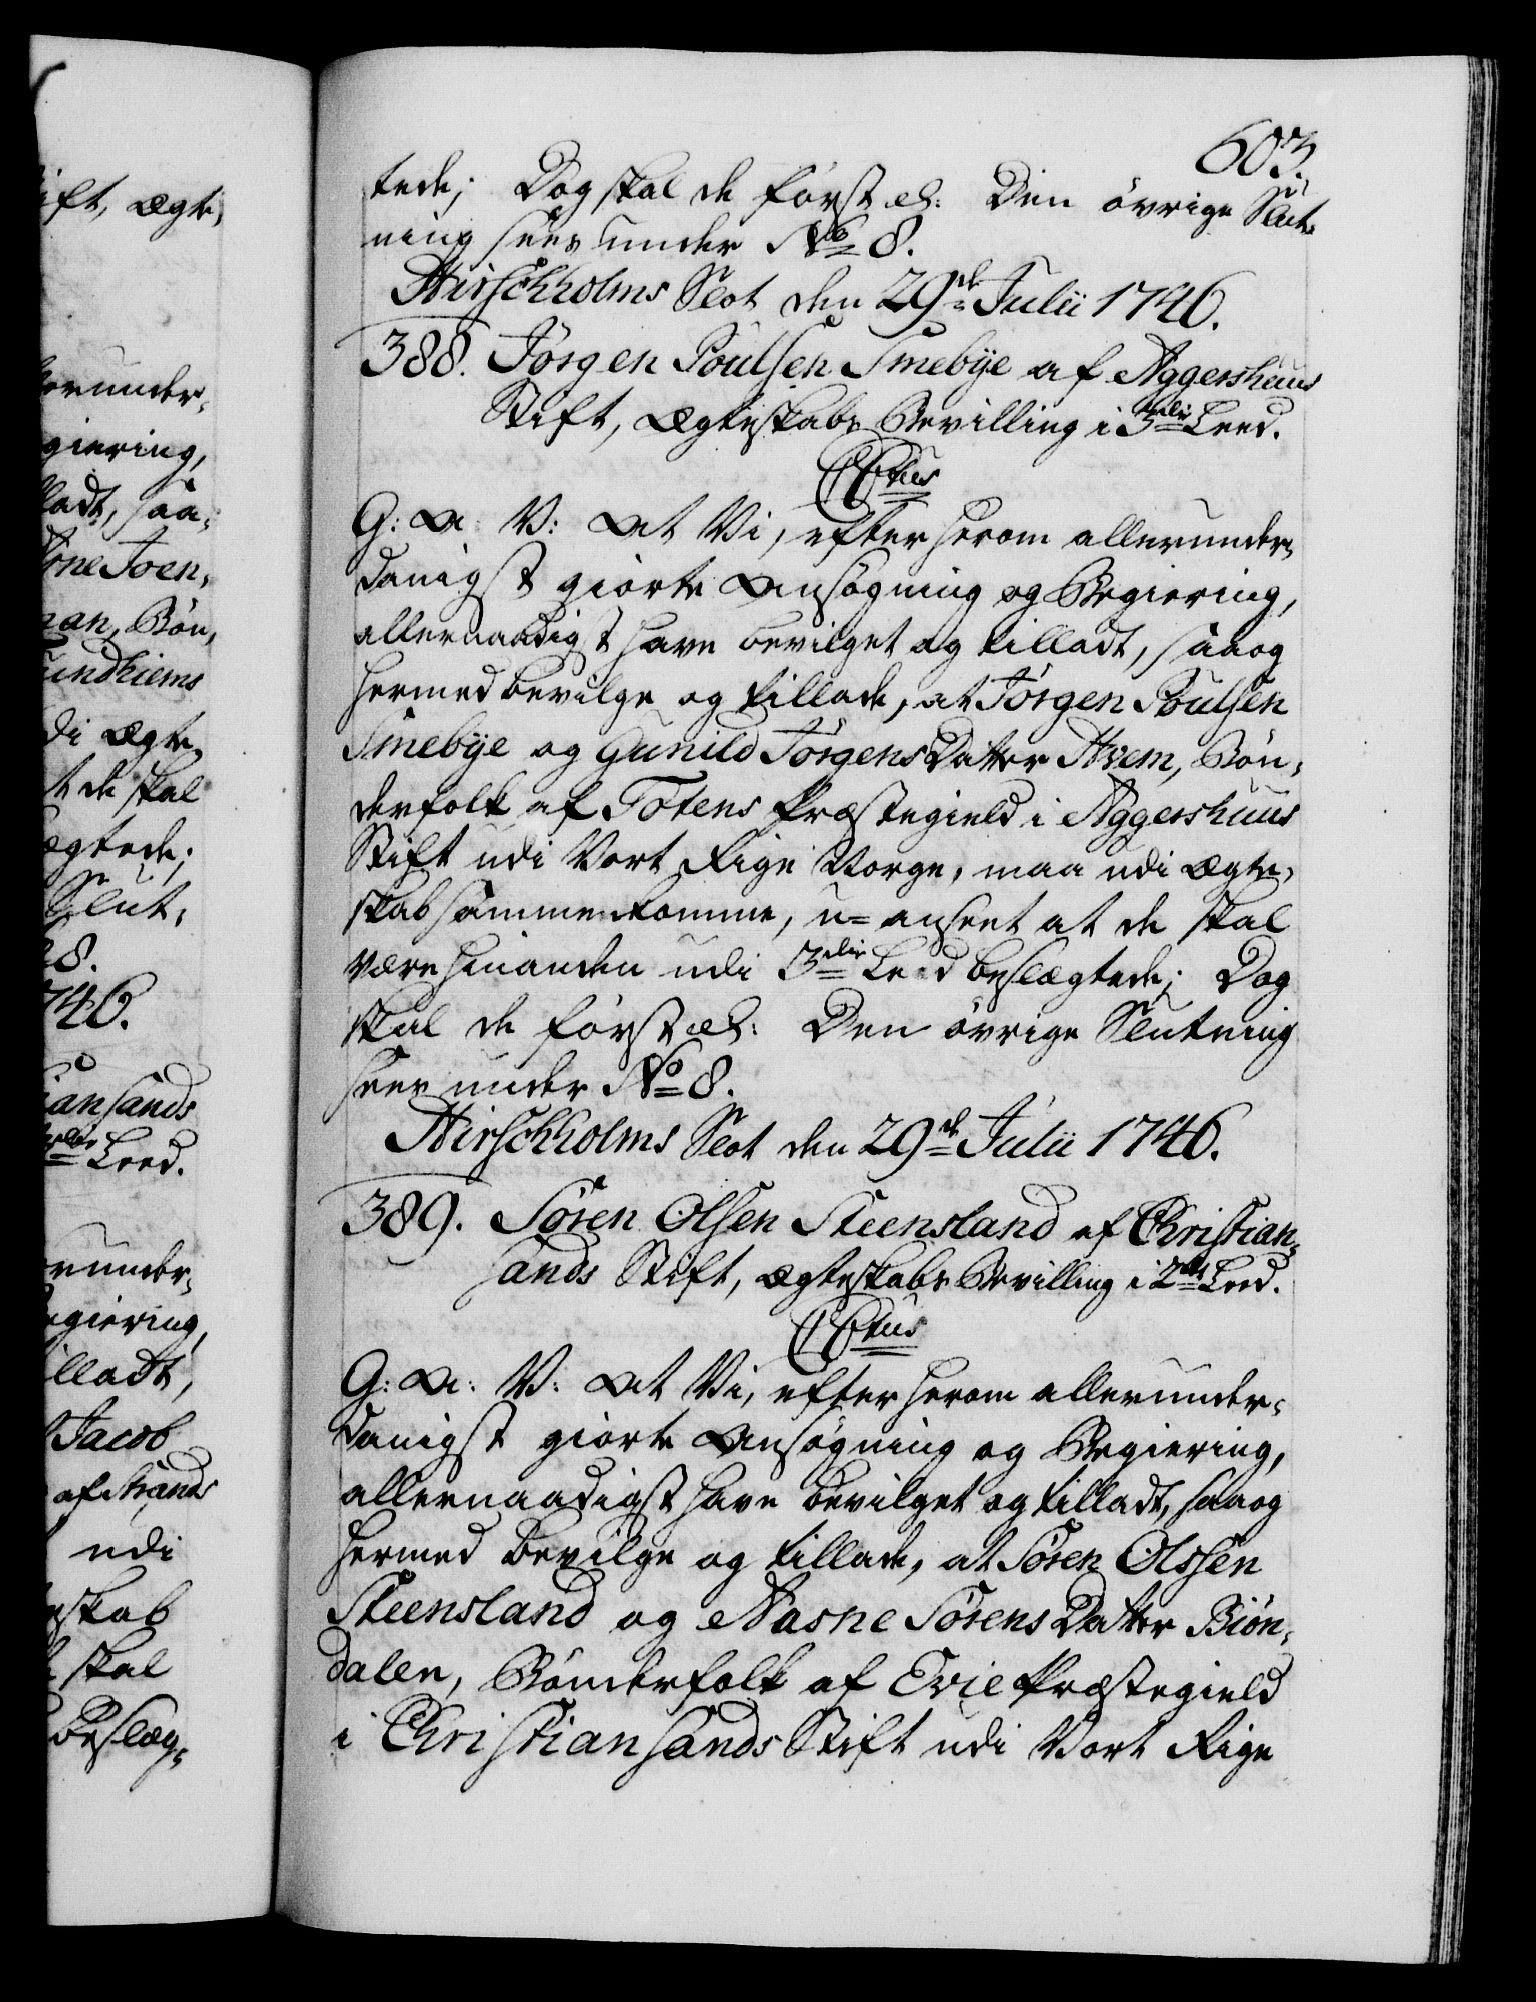 603.
tede; Dog skal de först &c: Den övrige Slut-
ning sees under No 8.
Hirschholms Slot den 29de Julii 1746.
388. Jörgen Poulsen Smebÿe af Aggershuus
Stift, Ægteskabs Bevilling i 3die Leed.
G: A: V: At Vi, efter herom allerunder-
danigst giorte Ansögning og Begiering,
allernaadigst have bevilget og tilladt, saa og
hermed bevilge og tillade, at Jörgen Poulsen
Smebÿe og Gunild Jörgens Datter Hvem, Bön-
derfolk af Totens Præstegield i Aggershuus
Stift udi Vort Rige Norge, maa udi Ægte-
skab sammenkomme, u-anseet at de skal
være hinanden udi 3die Leed beslægtede; Dog
skal de först &c: Den övrige Slutning
sees under No 8.
Hirschholms Slot den 29de Julii 1746.
389. Sören Olsen Steensland af Christian-
sands Stift, Ægteskabs Bevilling i 2det Leed.
G: A: V: At Vi, efter herom allerunder-
danigst giorte Ansögning og Begiering,
allernaadigst have bevilget og tilladt, saa og
hermed bevilge og tillade, at Sören Olssen
Steensland og Aasne Sörens Datter Biön-
dalen, Bönderfolk af Evie Præstegield
i Christiansands Stift udi Vort Rige
ift, Ægte-
erunder-
giering,
ladt, saa-
Joen-
Bön-
undhiems
di Ægte-
t de skal
ægtede;
Slut-
8.
746.
iansands
Leed.
erunder-
egiering,
illadt,
Jacob
af
udi
eskab
skal
beslæg-